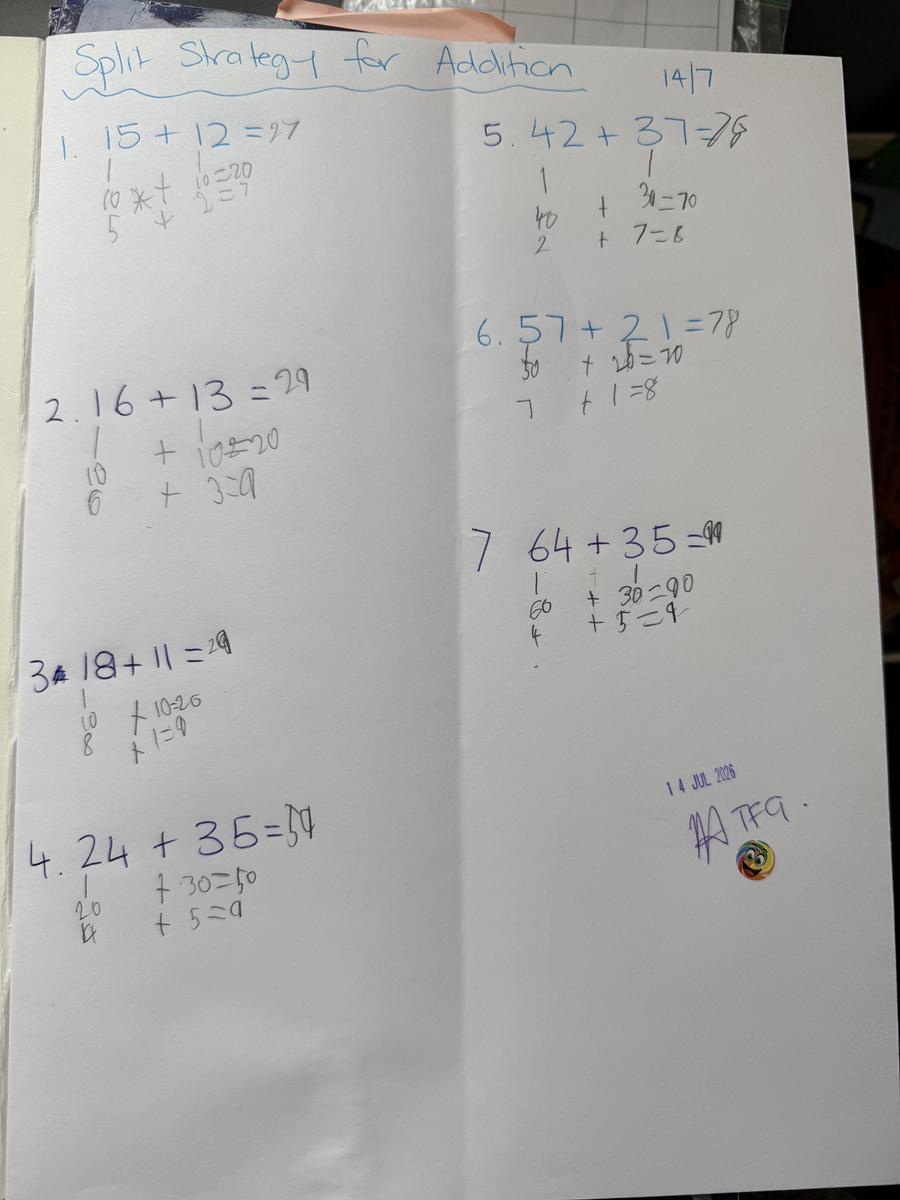 Split Strategy for Addition
14/7
1. 15 + 12 = 27
10 + 10=20
5 + 2=7
2. 16 + 13 = 29
10 + 10=20
6 + 3=9
3. 18 + 11 = 29
10 + 10=20
8 + 1=9
4. 24 + 35 = 59
20 + 30=50
4 + 5=9
5. 42 + 37=78
40 + 30=70
2 + 7=8
6. 57 + 21 = 78
50 + 20=70
7 + 1=8
7 64 + 35 = 99
60 + 30=90
4 + 5=9
14 JUL 2026
TFG.